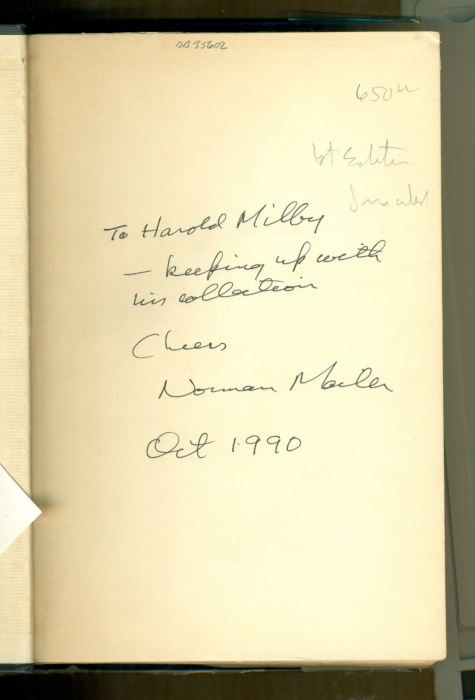 BB 35602
650⁰⁰
1st Edition
Inscribed
To Harold Milby
— keeping up with
his collection
Cheers
Norman Mailer
Oct 1990